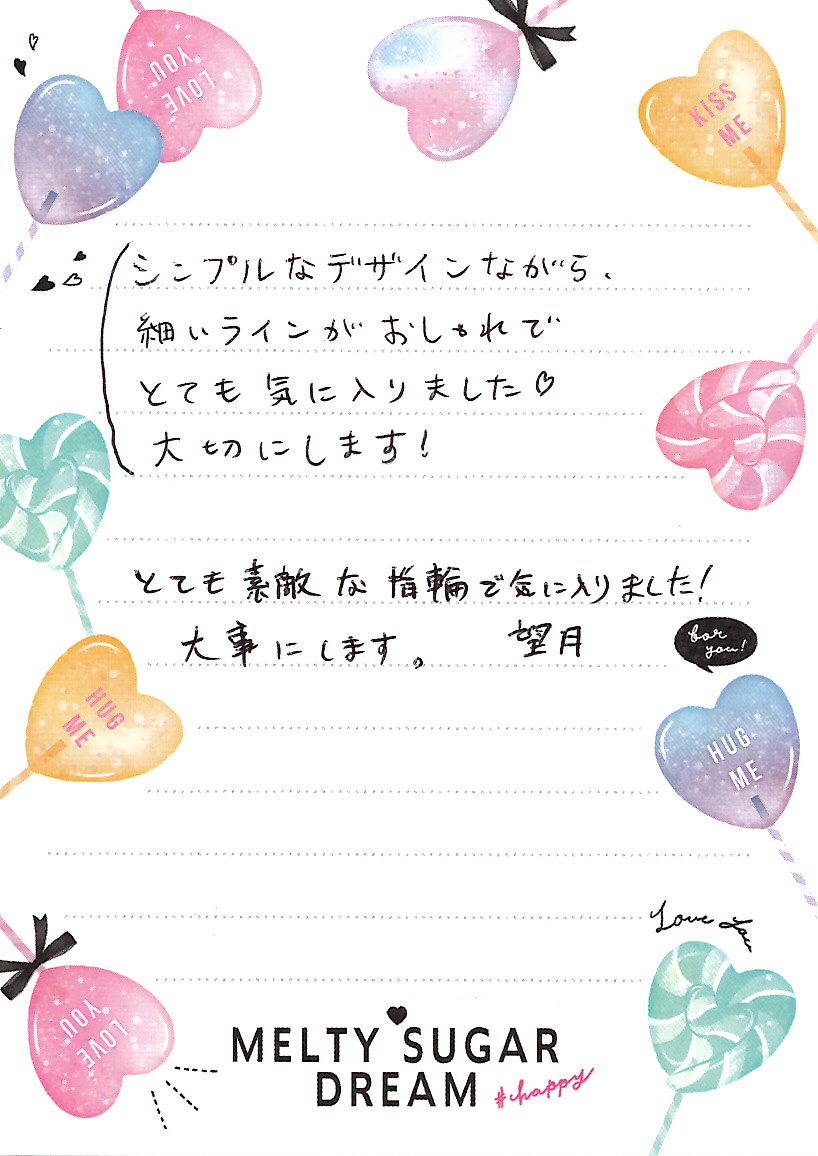 LOVE
YOU
KISS
ME
シンプルなデザインながら、
細いラインがおしゃれで
とても気に入りました♡
大切にします!
とても素敵な指輪で気に入りました!
大事にします。 望月
for
you!
HUG
ME
HUG
ME
Love You
LOVE
YOU
MELTY SUGAR
DREAM #happy